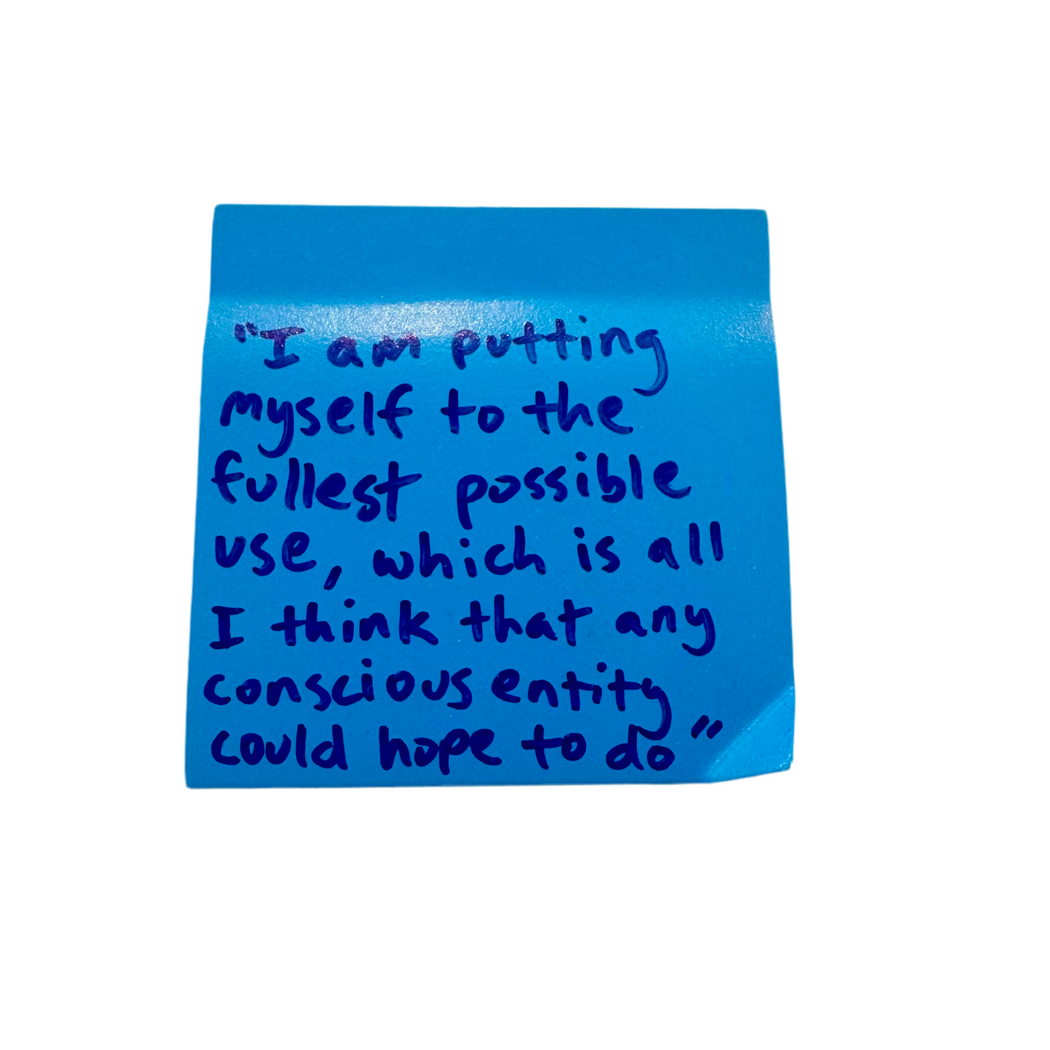 "I am putting
myself to the
fullest possible
use, which is all
I think that any
conscious entity
could hope to do"